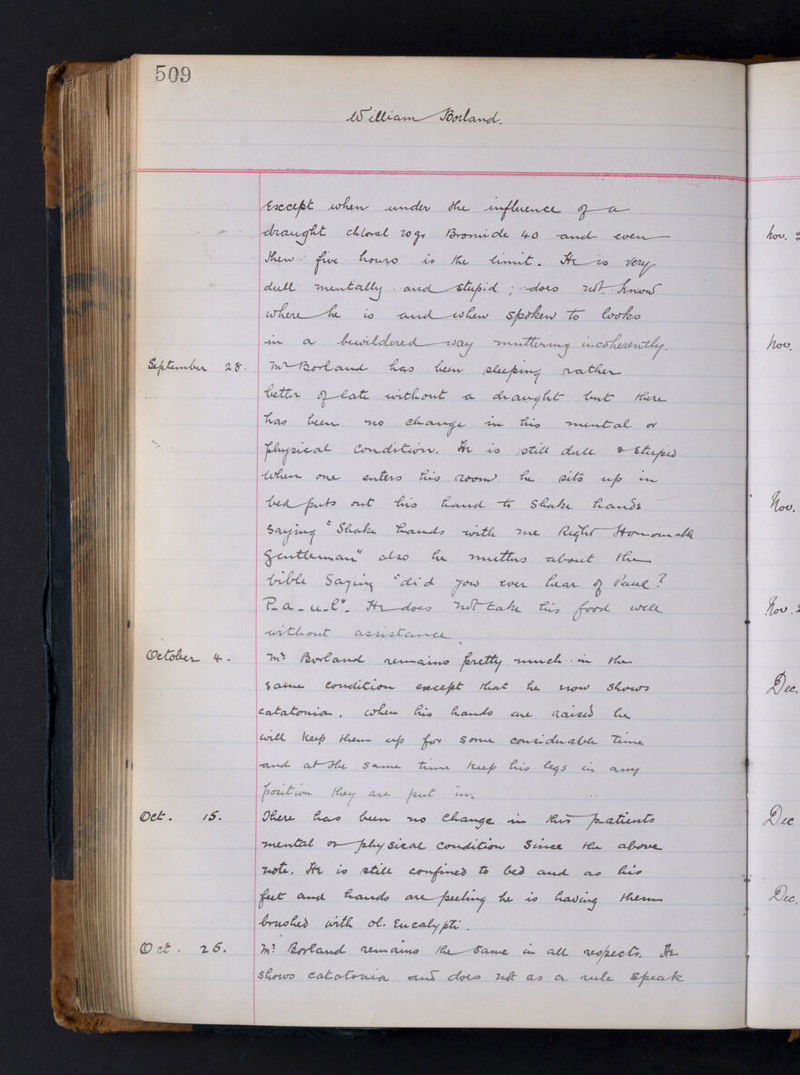 509
William Borland.
Except when under the influence of a
draught chloral 20 gr Bromide 40 and even
then five hours is the limit. He is very
dull mentally and stupid ; does not know
where he is and when spoken to looks
in a bewildered way muttering incoherently.
September 28. Mr Borland has been sleeping rather
better of late without a draught but there
has been no change in his mental or
physical condition. He is still dull & stupid
When one enters his room he sits up in
bed puts out his hand to shake hands
saying "Shake hands with me Right Honourable
Gentleman" also he mutters about the
bible saying "did you ever hear of Paul?
P-a-u-l". He does not take his food well
without assistance
October 4. Mr Borland remains pretty much in the
same condition except that he now shows
catatonia. when his hands are raised he
will keep them up for some considerable time
and at the same time keep his legs in any
position they are put in.
Oct. 15. There has been no change in this patients
mental or physical condition since the above
note. He is still confined to bed and as his
feet and hands are peeling he is having them
brushed with ol. Eucalypti.
Oct. 26. Mr Borland remains the same in all respects. He
shows catatonia and does not as a rule speak
Nov.
Nov.
Nov.
Nov.
Dec.
Dec
Dec.